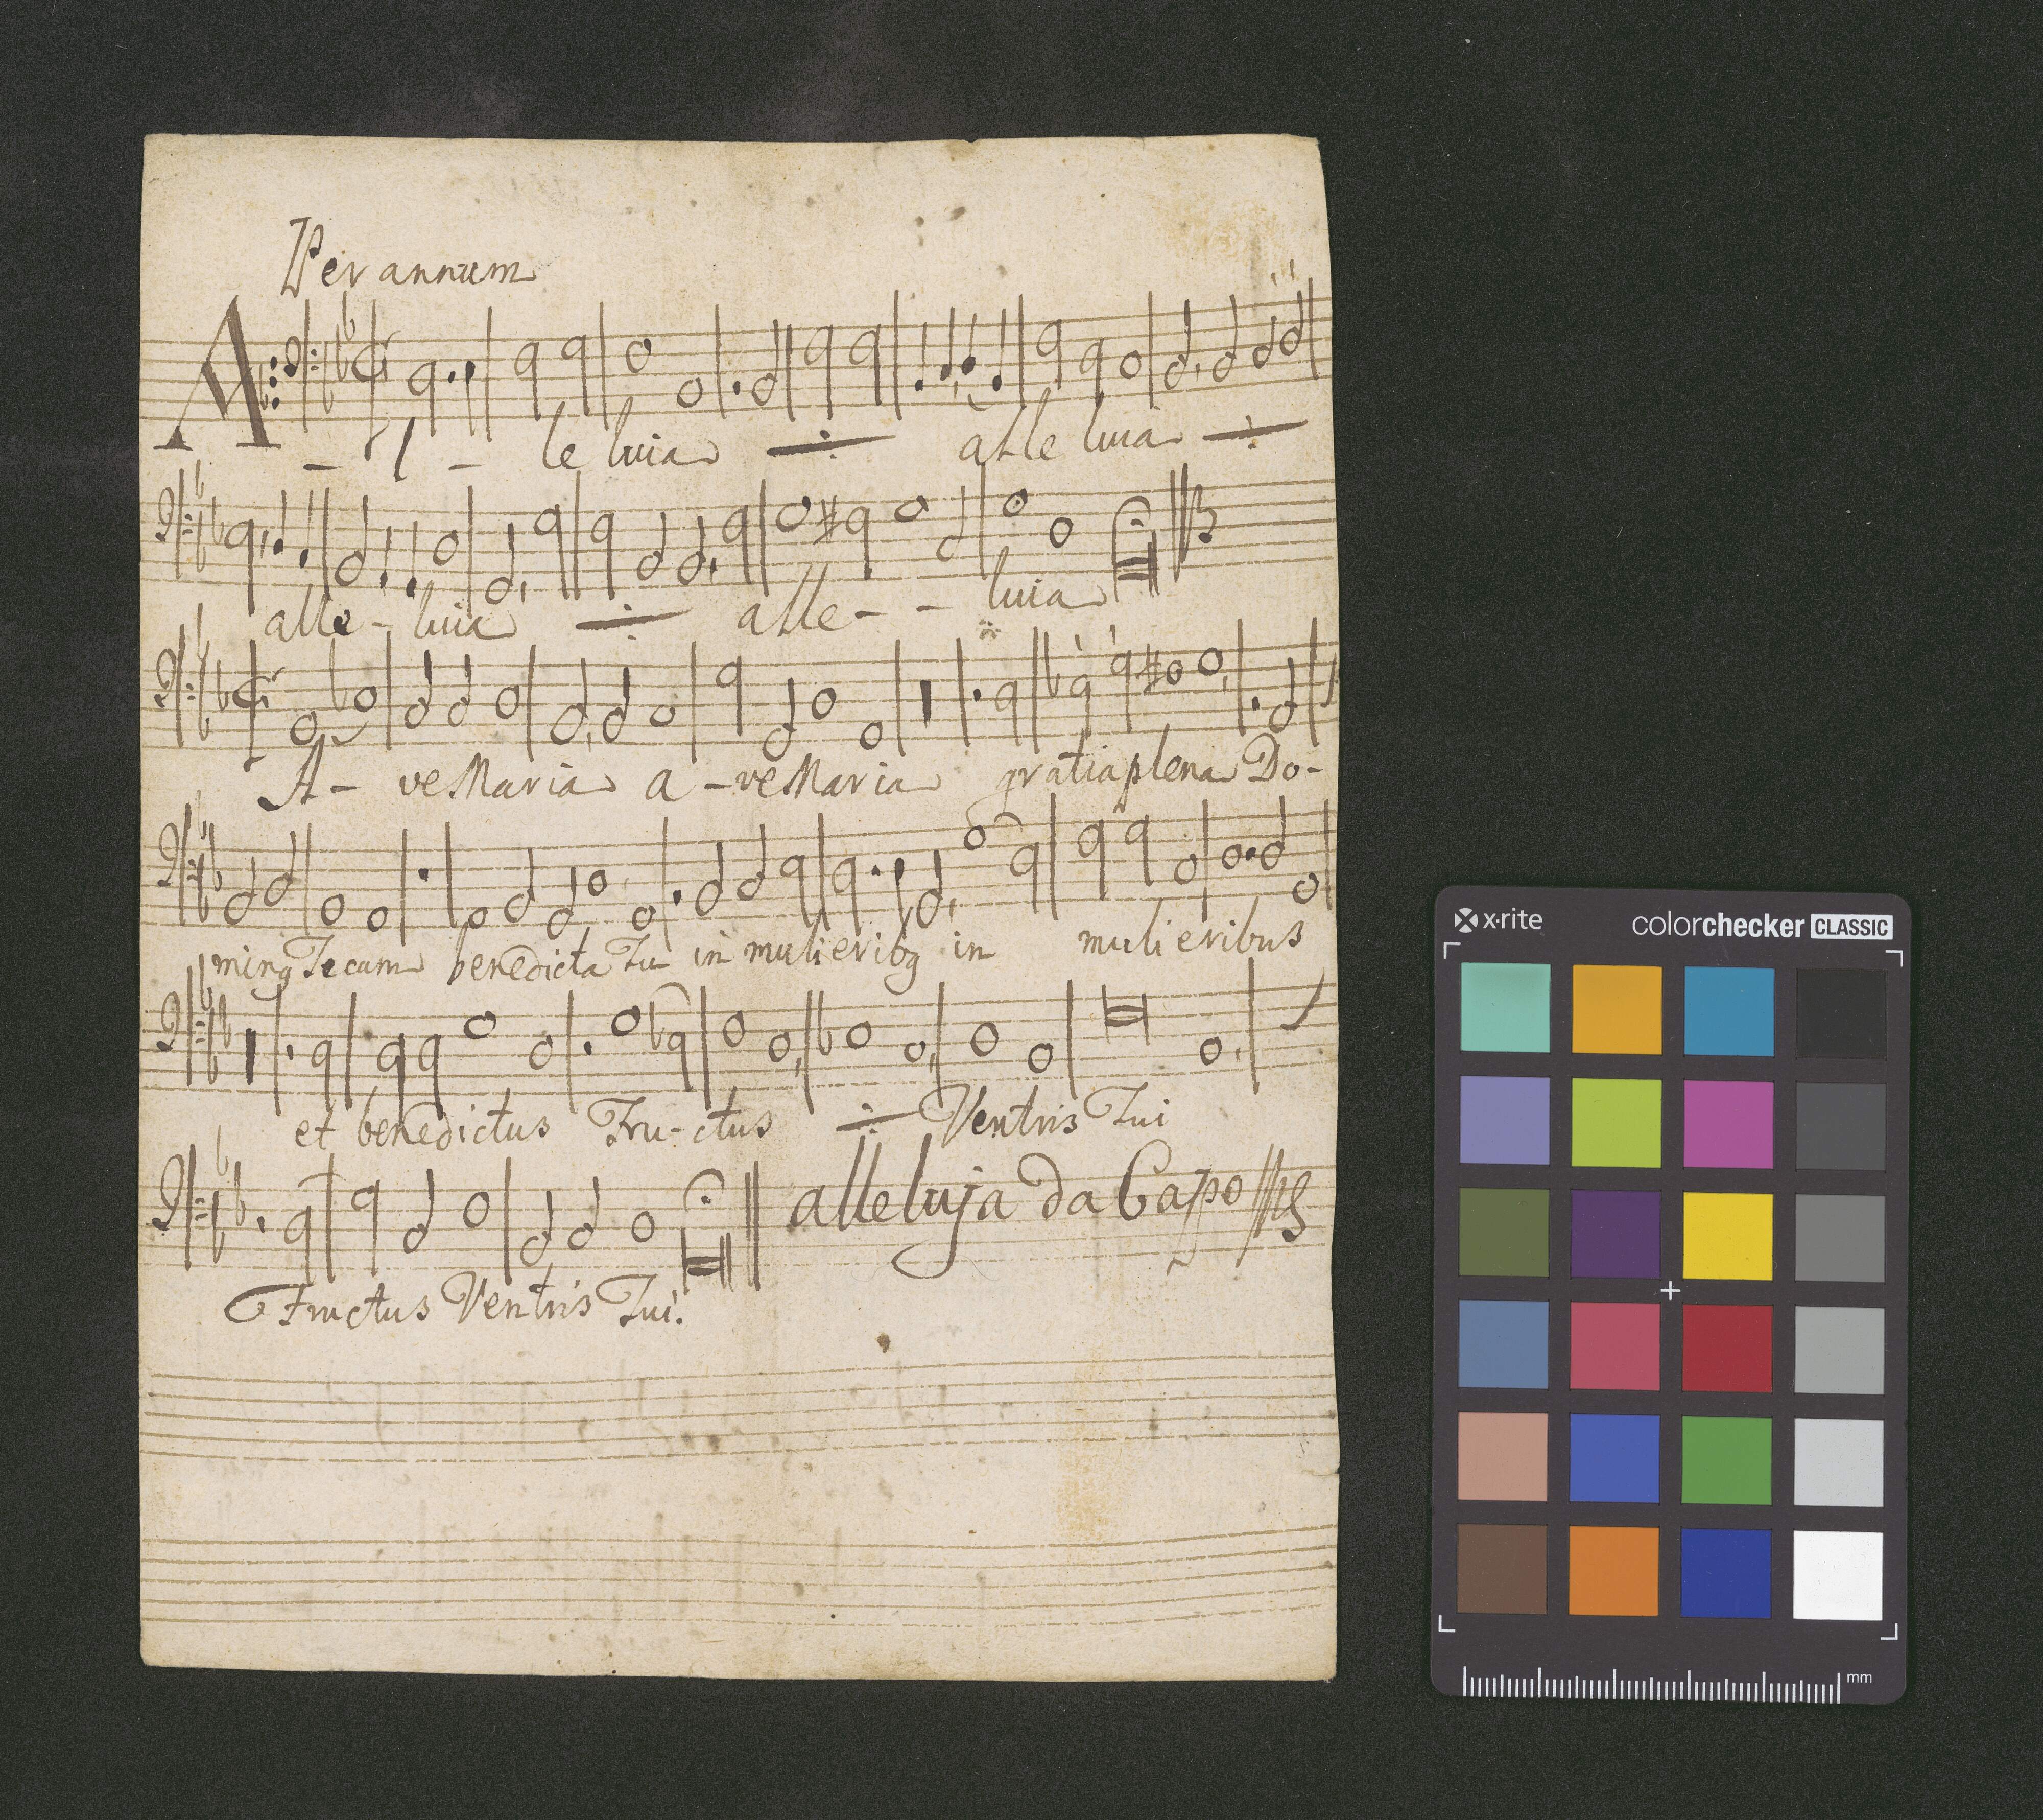 Per annum
Al - le luia ÷ alle luia ÷
alle - luia ÷ alle - - luia
A - ve Maria a - ve Maria gratia plena Do -
minꝰ Tecum benedicta Tu in mulieribꝰ in mulieribus
et benedictus Fru - ctus ÷ Ventris Tui
alleluja da Capo
Fructus Ventris Tui.
x-rite
colorchecker CLASSIC
mm